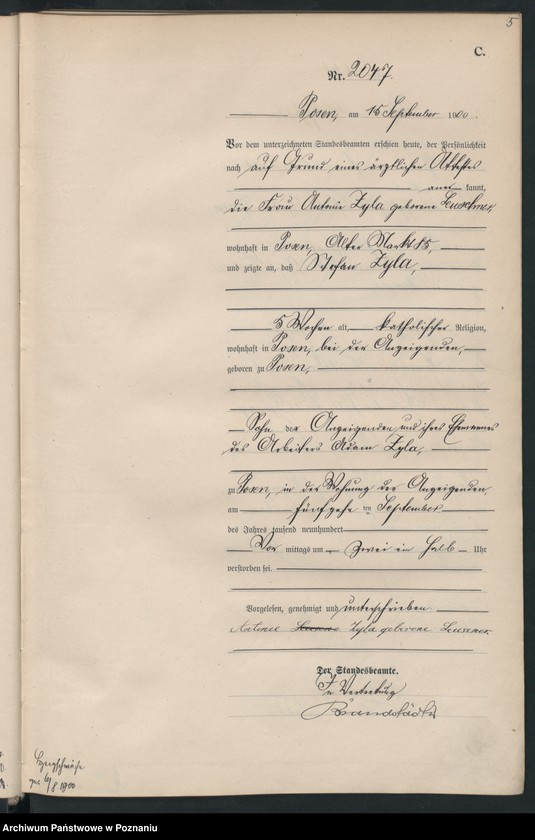 5
C.
Nr. 2047.
Posen, am 15 September 1900.
Vor dem unterzeichneten Standesbeamten erschien heute, der Persönlichkeit
nach auf Grund eines ärztlichen Attestes
anerkannt,
die Frau Antonie Zyla geborene Leuschner,
wohnhaft in Posen, Alter Markt 85,
und zeigte an, daß Stefan Zyla,
5 Wochen alt, katholischer Religion,
wohnhaft in Posen, bei der Anzeigenden,
geboren zu Posen,
Sohn der Anzeigenden und ihres Ehemannes
des Arbeiters Adam Zyla,
zu Posen, in der Wohnung der Anzeigenden,
am fünfzehnten September
des Jahres tausend neunhundert
Vor mittags um zwei ein halb Uhr
verstorben sei.
Vorgelesen, genehmigt und unterschrieben
Antonie Zyla geborene
Der Standesbeamte.
In Vertretung
Brandstädter
/8 1900
Archiwum Państwowe w Poznaniu